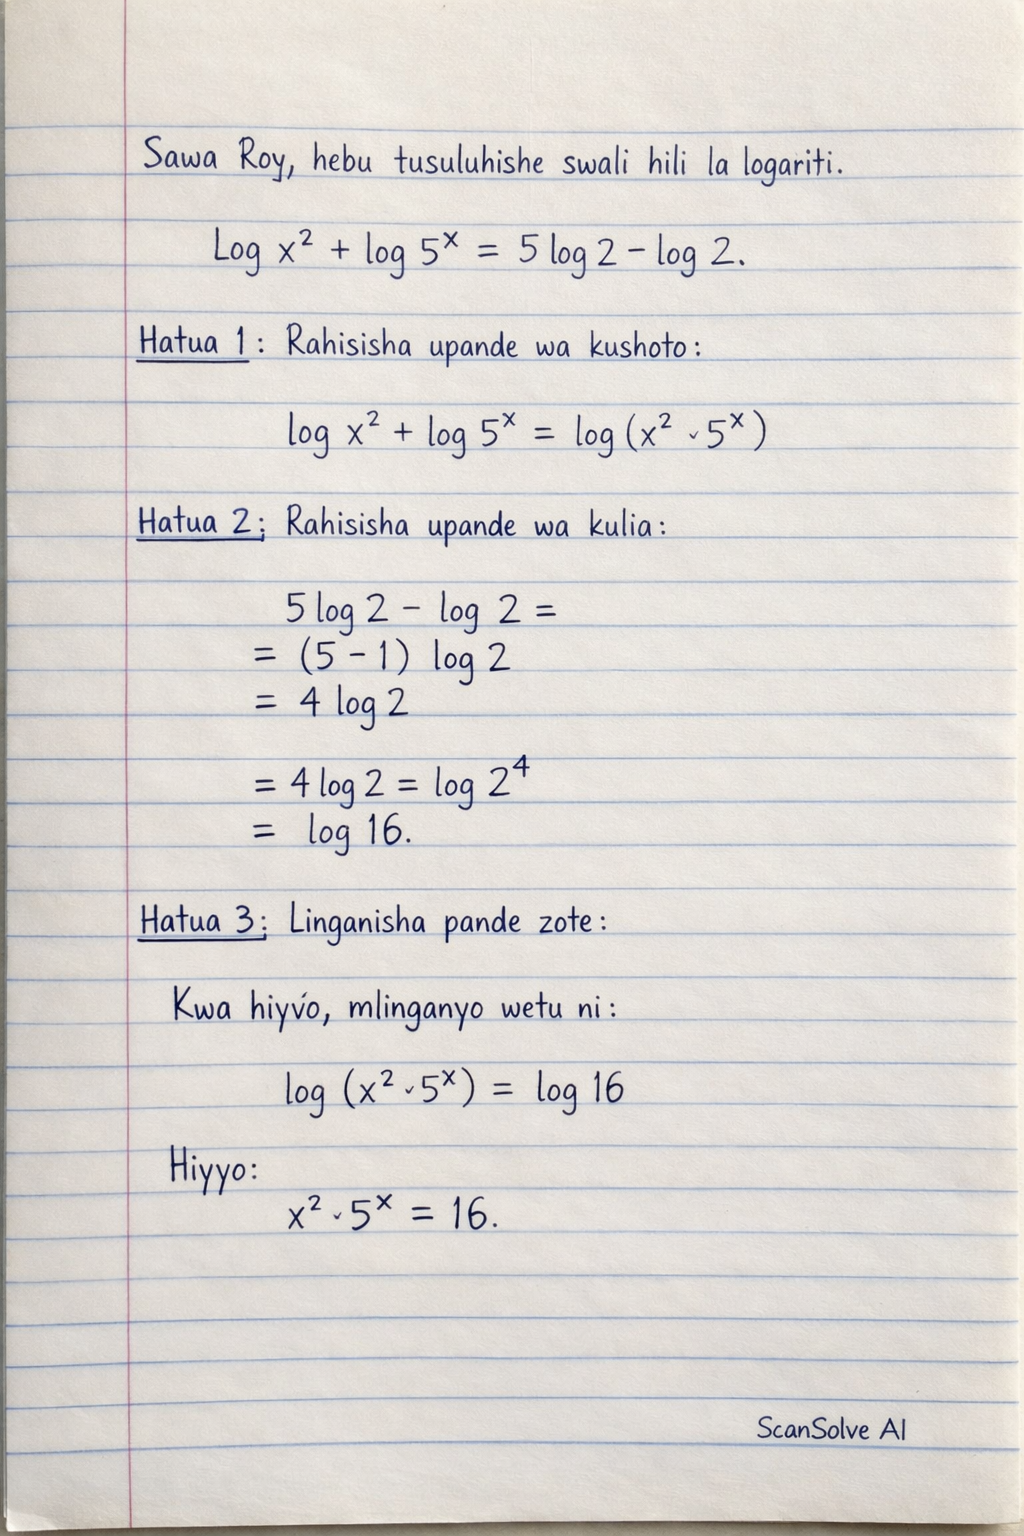 Sawa Roy, hebu tusuluhishe swali hili la logariti.
Log x² + log 5ˣ = 5 log 2 – log 2.
Hatua 1: Rahisisha upande wa kushoto:
log x² + log 5ˣ = log (x² · 5ˣ)
Hatua 2: Rahisisha upande wa kulia:
5 log 2 – log 2 =
= (5 – 1) log 2
= 4 log 2
= 4 log 2 = log 2⁴
= log 16.
Hatua 3: Linganisha pande zote:
Kwa hiyvo, mlinganyo wetu ni:
log (x² · 5ˣ) = log 16
Hiyyo:
x² · 5ˣ = 16.
ScanSolve AI